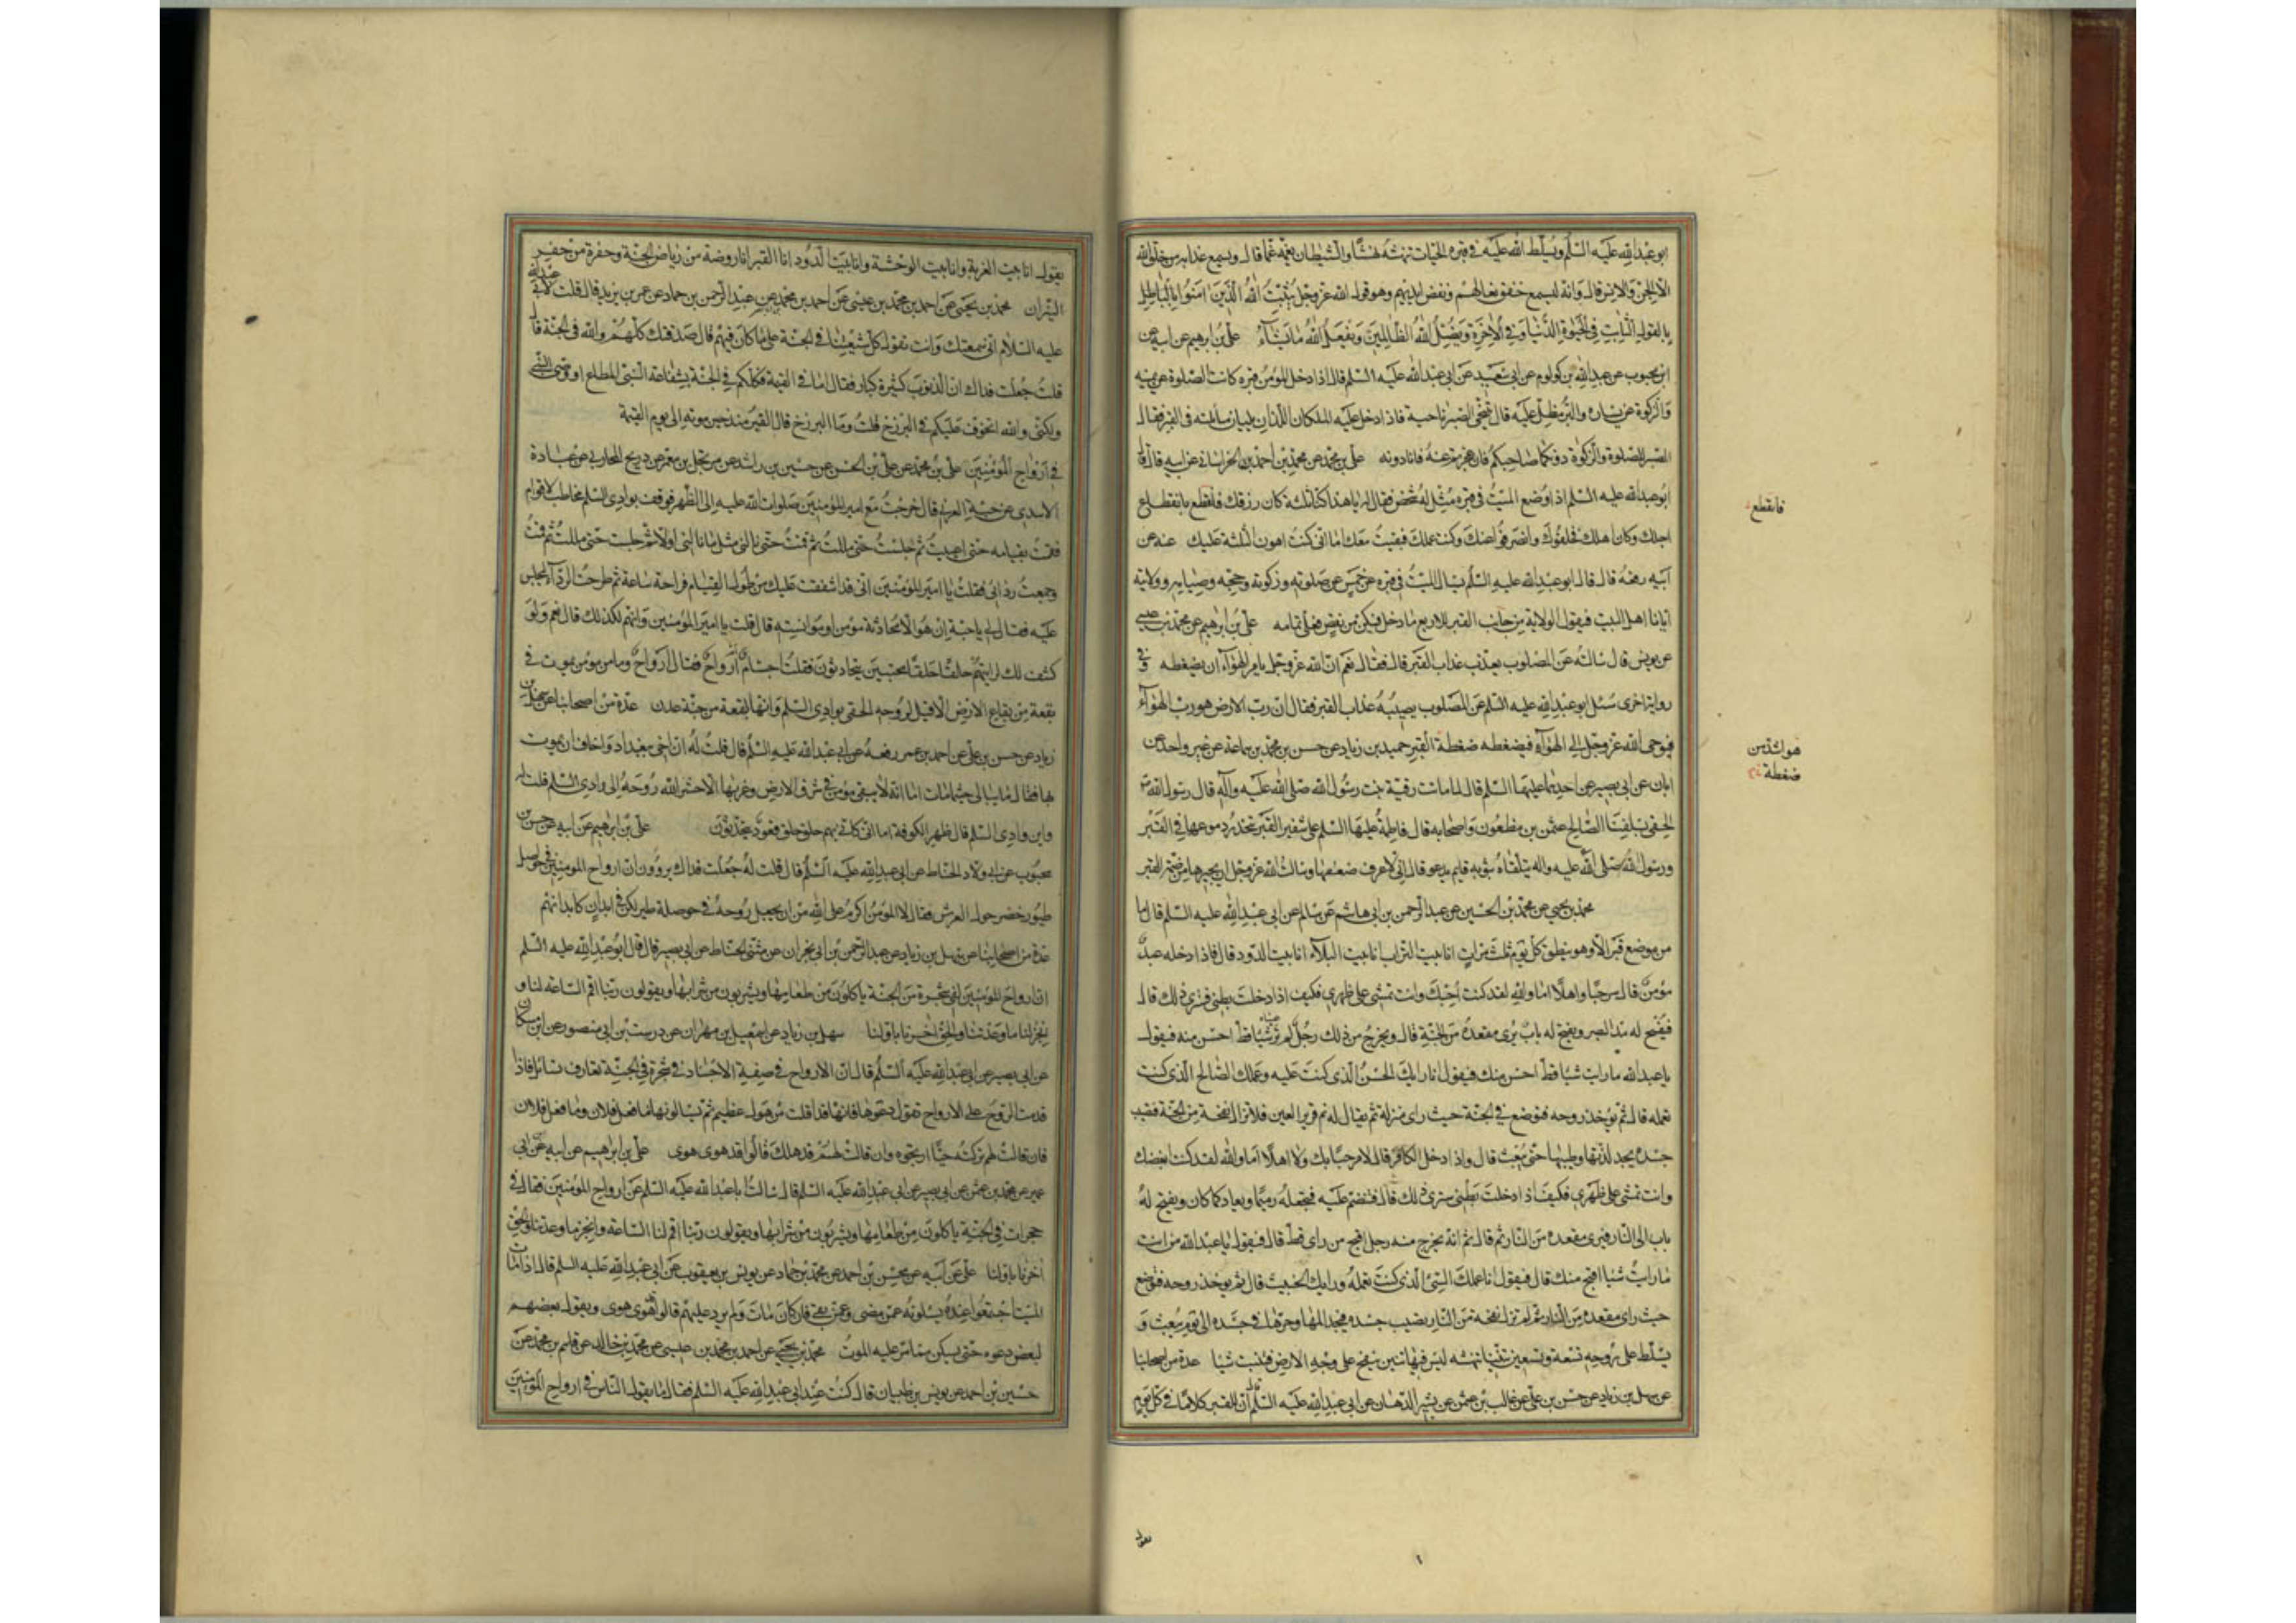 ابو عبد الله عليه السلم ويسلط الله عليه في قبره الحيات تنهشه نهشا والشيطان يغمه غما قال ويسمع عذابه من خلق الله
الا الجن والانس قال وانه ليسمع خفق نعالهم ونفض ايديهم وهو قول الله عز وجل يثبت الله الذين امنوا
بالقول الثابت في الحيوة الدنيا وفي الاخرة ويضل الله الظالمين ويفعل الله ما يشاء علي بن ابرهيم عن ابيه عن
ابن محبوب عن عبد الله بن كولوم عن ابي سعيد عن ابي عبد الله عليه السلم قال اذا دخل المؤمن قبره كانت الصلوة عن يمينه
والزكوة عن يساره والبر مطل عليه قال فيتنحى الصبر ناحية فاذا دخل عليه الملكان اللذان يليان مسائلته في القبر فقال
الصبر للصلوة والزكوة دونكما صاحبكم فان عجزتم عنه فانا دونه علي بن محمد عن محمد بن احمد بن الخراساني عن ابيه قال قال
ابو عبد الله عليه السلم اذا وضع الميت في قبره مثل له شخص فقال له يا هذا كنا ثلثة كان رزقك فانقطع بانقطاع
اجلك وكان اهلك فخلفوك وانصرفوا عنك وكنت عملك فبقيت معك اما اني كنت اهون الثلثة عليك عنه عن
ابيه رفعه قال قال ابو عبد الله عليه السلم يسال الميت في قبره عن خمس عن صلوته وزكوته وحجه وصيامه وولايته
ايانا اهل البيت فيقول الولاية من جانب القبر للاربع ما دخل فيكن من نقص فعلي تمامه علي بن ابرهيم عن محمد بن عيسى
عن يونس قال سالته عن المصلوب يعذب عذاب القبر قال فقال نعم ان الله عز وجل يامر الهواء ان يضغطه وفي
رواية اخرى سئل ابو عبد الله عليه السلم عن المصلوب يصيبه عذاب القبر فقال ان رب الارض هو رب الهواء
فيوحى الله عز وجل الى الهواء فيضغطه ضغطة القبر حميد بن زياد عن حسن بن محمد بن سماعة عن غير واحد عن
ابان عن ابي بصير عن احدهما عليهما السلم قال لما ماتت رقية بنت رسول الله صلى الله عليه وآله قال رسول الله ص
الحقي بسلفنا الصالح عثمن بن مظعون واصحابه قال فاطمة عليها السلم على شفير القبر تنحدر دموعها في القبر
ورسول الله صلى الله عليه واله يتلقاه بثوبه قايم يدعو قال اني لاعرف ضعفها وسالت الله عز وجل ان يجيرها من ضمة القبر
محمد بن يحيى عن محمد بن الحسين عن عبد الرحمن بن ابي هاشم عن سالم عن ابي عبد الله عليه السلم قال ما
من موضع قبر الا وهو ينطق كل يوم ثلث مرات انا بيت التراب انا بيت البلاء انا بيت الدود قال فاذا دخله عبد
مؤمن قال مرحبا واهلا اما والله لقد كنت احبك وانت تمشي على ظهري فكيف اذا دخلت بطني فترى ذلك قال
فيفسح له مد البصر ويفتح له باب يرى مقعده من الجنة قال ويخرج من ذلك رجل لم تر عيناه شيا قط احسن منه فيقول
يا عبد الله ما رايت شيا قط احسن منك فيقول انا رايك الحسن الذي كنت عليه وعملك الصالح الذي كنت
تعمله قال ثم يؤخذ روحه فتوضع في الجنة حيث راى منزله ثم يقال له نم قرير العين فلا تزال نفخة من الجنة فتصيب
جسده يجد لذتها وطيبها حتى يبعث قال واذا دخل الكافر قال لا مرحبا بك ولا اهلا اما والله لقد كنت ابغضك
وانت تمشي على ظهري فكيف اذا دخلت بطني سترى ذلك قال فتضم عليه فتجعله رميما ويعاد كما كان ويفتح له
باب الى النار فيرى مقعده من النار ثم قال ثم انه يخرج منه رجل اقبح من راى قط قال فيقول يا عبد الله من انت
ما رايت شيا اقبح منك قال فيقول انا عملك السيئ الذي كنت تعمله ورايك الخبيث قال ثم يوخذ روحه فتوضع
حيث راى مقعده من النار ثم لم تزل نفخة من النار تصيب جسده فيجد المها وحرها في جسده الى يوم يبعث و
يسلط على روحه تسعة وتسعين تنينا تنهشه ليس فيها تنين ينفخ على وجه الارض فتنبت شيا عدة من اصحابنا
عن سهل بن زياد عن حسن بن علي عن غالب بن عثمن عن بشير الدهان عن ابي عبد الله عليه السلم قال ان للقبر كلاما في كل يوم
فانقطع
هو اشد من
ضغطة
يقول
يقول انا بيت الغربة وانا بيت الوحشة وانا بيت الدود انا القبر انا روضة من رياض الجنة وحفرة من حفر
النيران محمد بن يحيى عن احمد بن محمد بن عيسى عن احمد بن محمد عن عبد الرحمن بن حماد عن عمر بن يزيد قال قلت لابي عبد الله
عليه السلام اني سمعتك وانت تقول كل شيعتنا في الجنة على ما كان فيهم قال صدقتك كلهم والله في الجنة قال
قلت جعلت فداك ان الذنوب كثيرة كبار فقال اما في القيمة فكلكم في الجنة بشفاعة النبي المطاع او وصي النبي
ولكني والله اتخوف عليكم في البرزخ قلت وما البرزخ قال القبر منذ حين موته الى يوم القيمة
في ارواح المؤمنين علي بن محمد عن علي بن الحسن عن حسين بن راشد عن مرتجل بن معمر عن ذريح المحاربي عن عبادة
الاسدي عن حبة العرني قال خرجت مع امير المؤمنين صلوات الله عليه الى الظهر فوقف بوادي السلم مخاطب لاقوام
فقمت بقيامه حتى اعييت ثم جلست حتى مللت ثم قمت حتى نالني مثل ما نالني اولا ثم جلست حتى مللت ثم قمت
وجمعت ردائي فقلت يا امير المؤمنين اني قد اشفقت عليك من طول القيام فراحة ساعة ثم طرحت الرداء ليجلس
عليه فقال لي يا حبة ان هو الا محادثة مؤمن او موانسته قال قلت يا امير المؤمنين وانهم لكذلك قال نعم ولو
كشف لك لرايتهم حلقا حلقا محتبين يتحادثون فقلت اجسام ام ارواح فقال ارواح وما من مؤمن يموت في
بقعة من بقاع الارض الا قيل لروحه الحقي بوادي السلم وانها لبقعة من جنة عدن عدة من اصحابنا عن سهل بن
زياد عن حسن بن علي عن احمد بن عمر رفعه عن ابي عبد الله عليه السلم قال قلت له ان اخي ببغداد واخاف ان يموت
بها فقال ما تبالي حيثما مات اما انه لا يبقى مؤمن في شرق الارض وغربها الا حشر الله روحه الى وادي السلم قلت له
واين وادي السلم قال ظهر الكوفة اما اني كاني بهم حلق حلق قعود يتحدثون علي بن ابرهيم عن ابيه عن حسن بن
محبوب عن ابي ولاد الحناط عن ابي عبد الله عليه السلم قال قلت له جعلت فداك يروون ان ارواح المومنين في حواصل
طيور خضر حول العرش فقال لا المؤمن اكرم على الله من ان يجعل روحه في حوصلة طير لكن في ابدان كابدانهم
عدة من اصحابنا عن سهل بن زياد عن عبد الرحمن بن ابي نجران عن مثنى الحناط عن ابي بصير قال قال ابو عبد الله عليه السلم
ان ارواح المؤمنين لفي شجرة من الجنة ياكلون من طعامها ويشربون من شرابها ويقولون ربنا اقم الساعة لنا و
انجز لنا ما وعدتنا والحق اخرنا باولنا سهل بن زياد عن اسمعيل بن مهران عن درست بن ابي منصور عن ابن مسكان
عن ابي بصير عن ابي عبد الله عليه السلم قال ان الارواح في صفة الاجساد في شجرة في الجنة تعارف تسائل فاذا
قدمت الروح على الارواح تقول دعوها فانها قد افلتت من هول عظيم ثم يسالونها ما فعل فلان وما فعل فلان
فان قالت لهم تركته حيا ارتجوه وان قالت لهم قد هلك قالوا قد هوى هوى علي بن ابرهيم عن ابيه عن ابن ابي
عمير عن محمد بن عثمن عن ابي بصير عن ابي عبد الله عليه السلم قال سالت ابا عبد الله عليه السلم عن ارواح المؤمنين فقال في
حجرات في الجنة ياكلون من طعامها ويشربون من شرابها ويقولون ربنا اقم لنا الساعة وانجز ما وعدتنا والحق
اخرنا باولنا علي عن ابيه عن محسن بن احمد عن محمد بن حماد عن يونس بن يعقوب عن ابي عبد الله عليه السلم قال اذا مات
الميت اجتمعوا عنده يسلونه عمن مضى وعمن بقي فان كان مات ولم يرد عليهم قالوا قد هوى هوى ويقول بعضهم
لبعض دعوه حتى يسكن مما مر عليه الموت محمد بن يحيى عن احمد بن محمد بن عيسى عن محمد بن خالد عن قاسم بن محمد عن
حسين بن احمد عن يونس بن ظبيان قال كنت عند ابي عبد الله عليه السلم فقال ما يقول الناس في ارواح المؤمنين